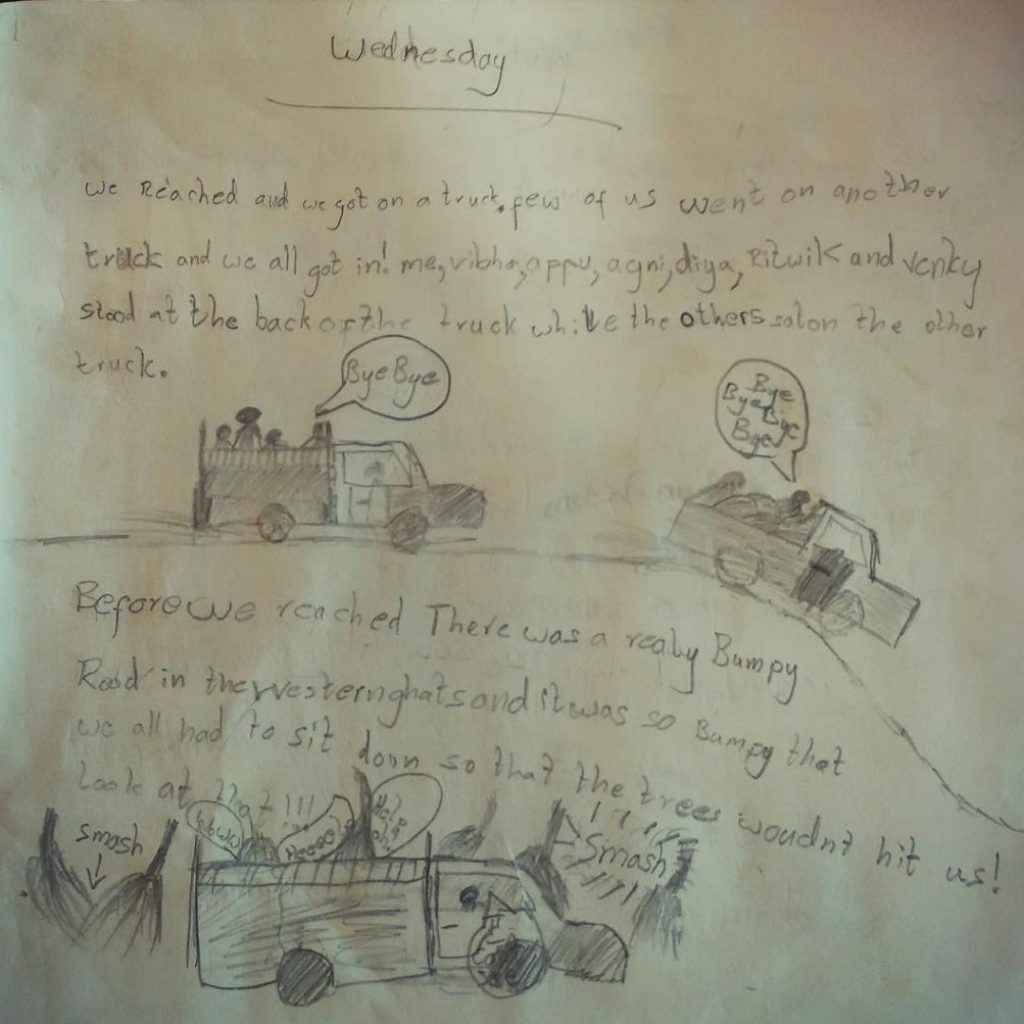 Wednesday
we Reached and we got on a truck. few of us went on another
truck and we all got in! me, vibha, appu, agni, diya, Ritwik and venky
stood at the back of the truck while the others sat on the other
truck.
Bye Bye
Bye
Bye Bye
Bye
Before we reached There was a realy Bumpy
Road in the western ghats and it was so Bumpy that
we all had to sit down so that the trees woudnt hit us!
Look at that!!!
Smash
Smash
Help